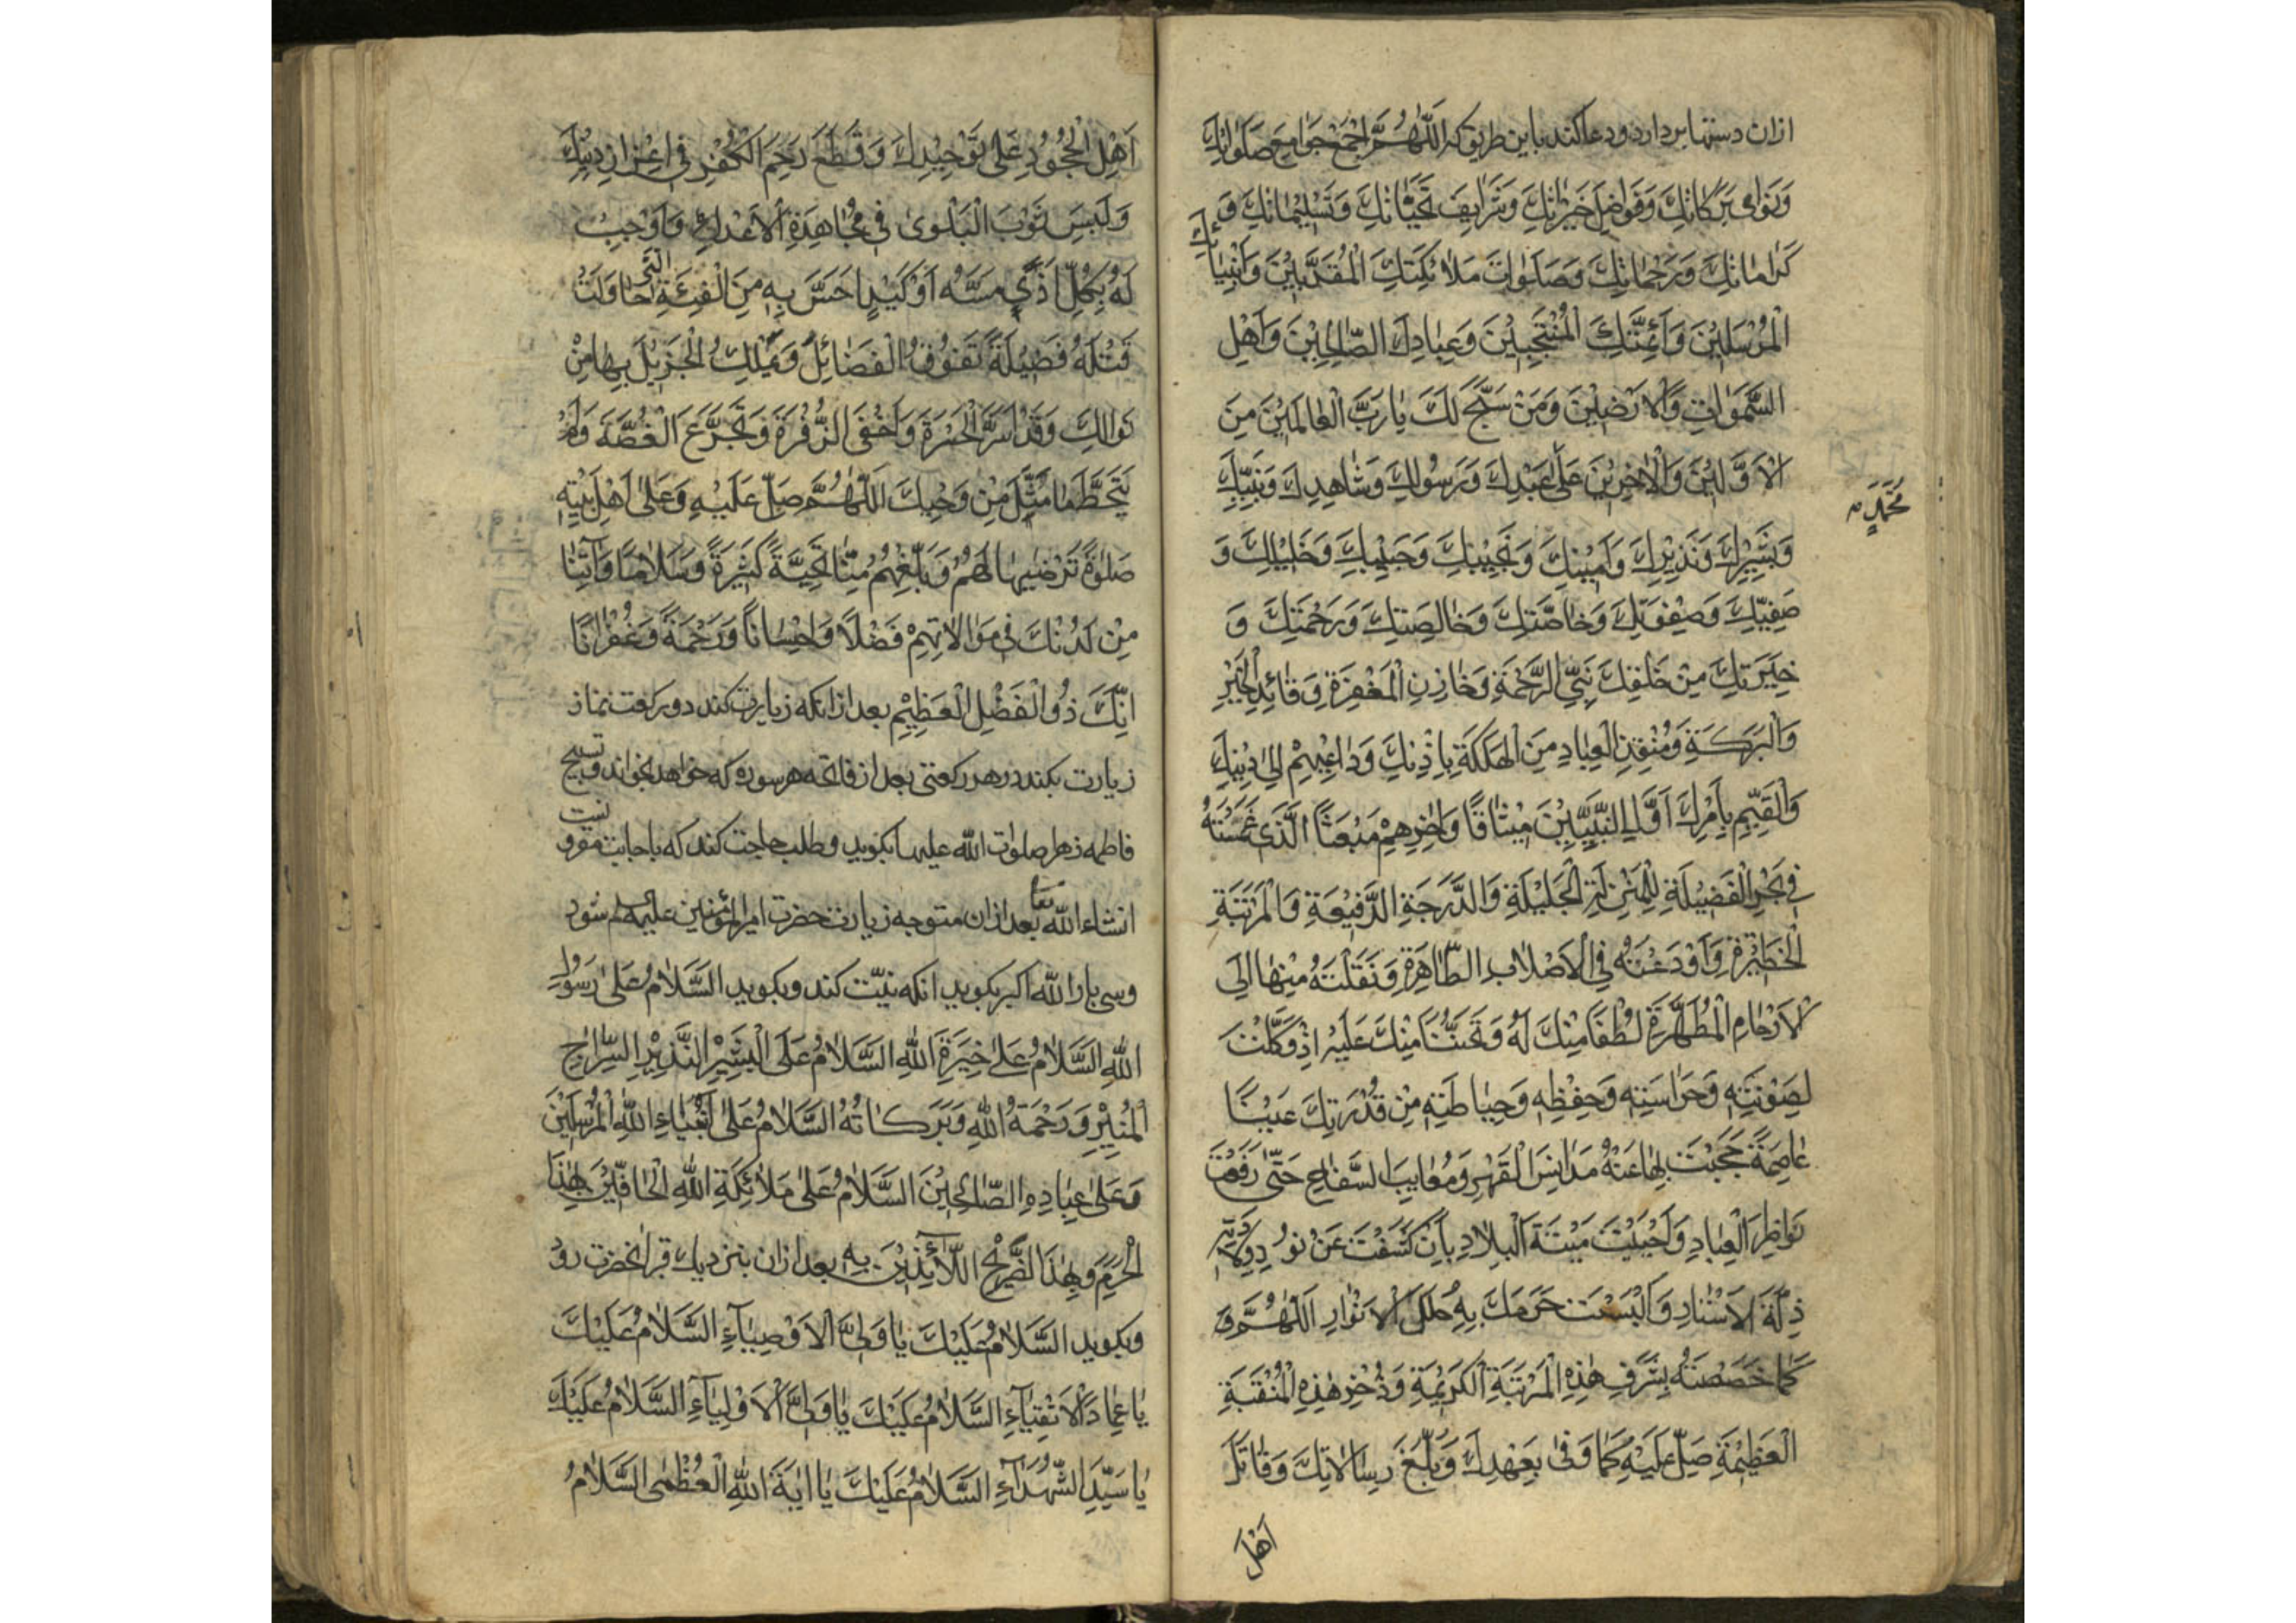 ازان دستها بردارد ودعا کند باین طریق که اَللّٰهُمَّ اجْمَعْ جَوَامِعَ صَلَوَاتِكَ
وَنَوَامِي بَرَكَاتِكَ وَفَوَاضِلَ خَيْرَاتِكَ وَشَرَايِفَ تَحِيَّاتِكَ وَتَسْلِيْمَاتِكَ وَ
كَرَامَاتِكَ وَرَحْمَاتِكَ وَصَلَوَاتِ مَلَائِكَتِكَ الْمُقَرَّبِيْنَ وَاَنْبِيَائِكَ
الْمُرْسَلِيْنَ وَاَئِمَّتِكَ الْمُنْتَجَبِيْنَ وَعِبَادِكَ الصَّالِحِيْنَ وَاَهْلِ
السَّمٰوَاتِ وَالْاَرَضِيْنَ وَمَنْ سَبَّحَ لَكَ يَا رَبَّ الْعَالَمِيْنَ مِنَ
الْاَوَّلِيْنَ وَالْاٰخِرِيْنَ عَلٰى عَبْدِكَ وَرَسُوْلِكَ وَشَاهِدِكَ وَنَبِيِّكَ
مُحَمَّدٍ
وَبَشِيْرِكَ وَنَذِيْرِكَ وَاَمِيْنِكَ وَنَجِيْبِكَ وَحَبِيْبِكَ وَخَلِيْلِكَ وَ
صَفِيِّكَ وَصِفْوَتِكَ وَخَاصَّتِكَ وَخَالِصَتِكَ وَرَحْمَتِكَ وَ
خِيَرَتِكَ مِنْ خَلْقِكَ نَبِيِّ الرَّحْمَةِ وَخَازِنِ الْمَغْفِرَةِ وَقَائِدِ الْخَيْرِ
وَالْبَرَكَةِ وَمُنْقِذِ الْعِبَادِ مِنَ الْهَلَكَةِ بِاِذْنِكَ وَدَاعِيْهِمْ اِلٰى دِيْنِكَ
وَالْقَيِّمِ بِاَمْرِكَ اَوَّلِ النَّبِيِّيْنَ مِيْثَاقًا وَاٰخِرِهِمْ مَبْعَثًا الَّذِي غَمَسْتَهُ
فِي بَحْرِ الْفَضِيْلَةِ لِلْمَنْزِلَةِ الْجَلِيْلَةِ وَالدَّرَجَةِ الرَّفِيْعَةِ وَالْمَرْتَبَةِ
الْخَطِيْرَةِ وَاَوْدَعْتَهُ فِي الْاَصْلَابِ الطَّاهِرَةِ وَنَقَلْتَهُ مِنْهَا اِلَى
الْاَرْحَامِ الْمُطَهَّرَةِ لُطْفًا مِنْكَ لَهُ وَتَحَنُّنًا مِنْكَ عَلَيْهِ اِذْ وَكَّلْتَ
لِصَوْنِهِ وَحَرَاسَتِهِ وَحِفْظِهِ وَحِيَاطَتِهِ مِنْ قُدْرَتِكَ عَيْنًا
عَاصِمَةً حَجَبْتَ بِهَا عَنْهُ مَدَانِسَ الْعَهْرِ وَمَعَايِبَ السَّفَاحِ حَتّٰى رَفَعْتَ
نَوَاظِرَ الْعِبَادِ وَاَحْيَيْتَ مَيْتَةَ الْبِلَادِ بِاَنْ كَشَفْتَ عَنْ نُوْرِ وِلَادَتِهِ
ظُلَمَ الْاَسْتَارِ وَاَلْبَسْتَ حَرَمَكَ بِهِ حُلَلَ الْاَنْوَارِ اَللّٰهُمَّ وَ
كَمَا خَصَصْتَهُ بِشَرَفِ هٰذِهِ الْمَرْتَبَةِ الْكَرِيْمَةِ وَذُخْرِ هٰذِهِ الْمَنْقَبَةِ
الْعَظِيْمَةِ صَلِّ عَلَيْهِ كَمَا وَفٰى بِعَهْدِكَ وَبَلَّغَ رِسَالَاتِكَ وَقَاتَلَ
اَهْلَ
اَهْلَ الْجُحُوْدِ عَلٰى تَوْحِيْدِكَ وَقَطَعَ رَحِمَ الْكُفْرِ فِي اِعْزَازِ دِيْنِكَ
وَلَبِسَ ثَوْبَ الْبَلْوٰى فِي مُجَاهَدَةِ الْاَعْدَاءِ وَاَوْجِبْ
لَهُ بِكُلِّ اَذًى مَسَّهُ اَوْ كَيْدٍ اَحَسَّ بِهِ مِنَ الْفِئَةِ الَّتِي حَاوَلَتْ
قَتْلَهُ فَضِيْلَةً تَفُوْقُ الْفَضَائِلَ وَيَمْلِكُ الْجَزِيْلَ بِهَا مِنْ
نَوَالِكَ وَقَدْ اَسَرَّ الْحَسْرَةَ وَاَخْفَى الزَّفْرَةَ وَتَجَرَّعَ الْغُصَّةَ وَلَمْ
يَتَخَطَّ مَا مُثِّلَ مِنْ وَحْيِكَ اَللّٰهُمَّ صَلِّ عَلَيْهِ وَعَلٰى اَهْلِ بَيْتِهِ
صَلٰوةً تَرْضٰيهَا لَهُمْ وَبَلِّغْهُمْ مِنَّا تَحِيَّةً كَثِيْرَةً وَسَلَامًا وَاٰتِنَا
مِنْ لَدُنْكَ فِي مَوَالَاتِهِمْ فَضْلًا وَاِحْسَانًا وَرَحْمَةً وَغُفْرَانًا
اِنَّكَ ذُو الْفَضْلِ الْعَظِيْمِ بعد ازانکه زیارت کند دو رکعت نماز
زیارت بکند در هر رکعتی بعد از فاتحه هر سوره که خواهد بخواند و تسبیح
فاطمه زهرا صلوات الله علیها بکوید وطلب حاجت کند که باجابت مقرونست
انشاء الله تعا بعد ازان متوجه زیارت حضرت امیرالمؤمنین علیه السلم شود
وسی بار الله اکبر بکوید انکه نیّت کند وبکوید السَّلَامُ عَلٰى رَسُوْلِ
اللّٰهِ السَّلَامُ عَلٰى خِيَرَةِ اللّٰهِ السَّلَامُ عَلَى الْبَشِيْرِ النَّذِيْرِ السِّرَاجِ
الْمُنِيْرِ وَرَحْمَةُ اللّٰهِ وَبَرَكَاتُهُ السَّلَامُ عَلٰى اَنْبِيَاءِ اللّٰهِ الْمُرْسَلِيْنَ
وَعَلٰى عِبَادِهِ الصَّالِحِيْنَ السَّلَامُ عَلٰى مَلَائِكَةِ اللّٰهِ الْحَافِّيْنَ بِهٰذَا
الْحَرَمِ وَبِهٰذَا الضَّرِيْحِ اللَّائِذِيْنَ بِهِ بعد ازان بنزدیك قبر انحضرت رود
وبکوید السَّلَامُ عَلَيْكَ يَا وَلِيَّ الْاَوْصِيَاءِ السَّلَامُ عَلَيْكَ
يَا عِمَادَ الْاَتْقِيَاءِ السَّلَامُ عَلَيْكَ يَا وَلِيَّ الْاَوْلِيَاءِ السَّلَامُ عَلَيْكَ
يَا سَيِّدَ الشُّهَدَاءِ السَّلَامُ عَلَيْكَ يَا اٰيَةَ اللّٰهِ الْعُظْمٰى السَّلَامُ